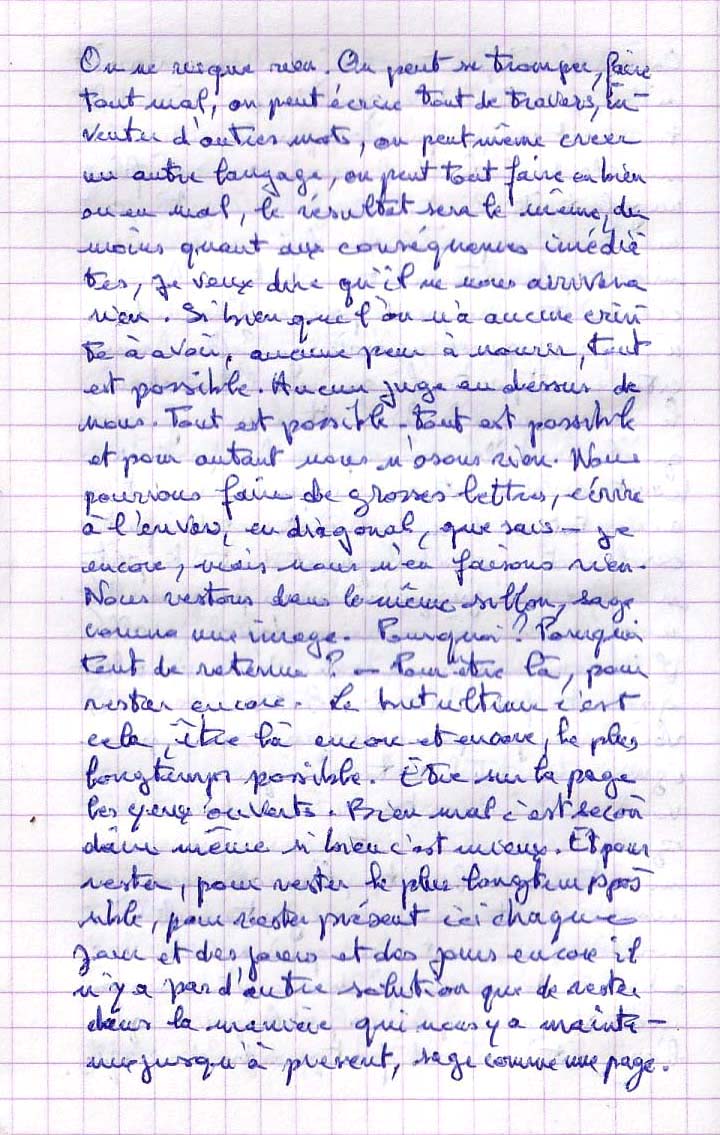 On ne risque rien. On peut se tromper, faire
tout mal, on peut écrire tout de travers, in-
venter d'autres mots, on peut même créer
un autre langage, on peut tout faire en bien
ou en mal, le résultat sera le même, du
moins quant aux conséquences imédia
tes, je veux dire qu'il ne nous arrivera
rien. Si bien que l'on n'a aucune crain
te à avoir, aucune peur à nourrir, tout
est possible. Aucun juge au dessus de
nous. Tout est possible. Tout est possible
et pour autant nous n'osons rien. Nous
pourrions faire de grosses lettres, écrire
à l'envers, en diagonal, que sais-je
encore, mais nous n'en faisons rien.
Nous restons dans le même sillon, sage
comme une image. Pourquoi ? Pourquoi
tant de retenue ? – Pour être là, pour
rester encore. Le but ultime c'est
cela, être là encore et encore, le plus
longtemps possible. Être sur la page
les yeux ouverts. Bien mal c'est secon
daire même si bien c'est mieux. Et pour
rester, pour rester le plus longtemps pos
sible, pour rester présent ici chaque
jour et des jours et des jours encore il
n'y a pas d'autre solution que de rester
dans la manière qui nous y a mainte-
nu jusqu'à présent, sage comme une page.